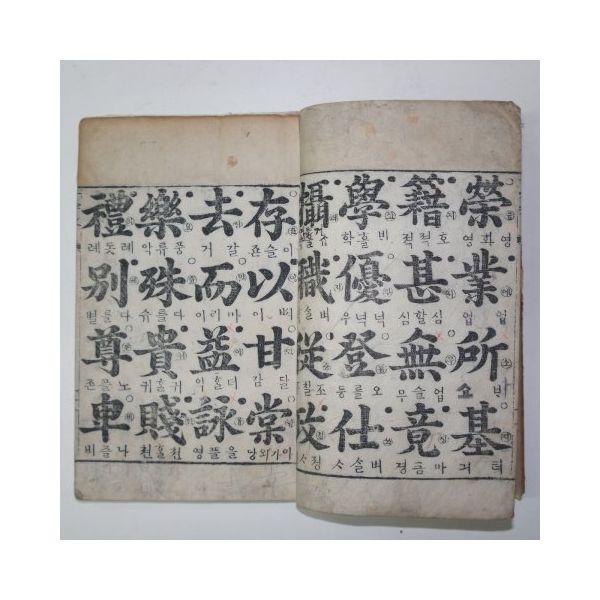 榮 영화영
業 업업
所 바소
基 터
籍 호적적
甚 심할심
無 업슬무
竟
學 학
優 넉넉우
登 오를등
仕 벼슬ᄉ
攝
職 벼슬
從
政 정
存 이슬죤
以 이
甘 달감
棠 아가외당
去 갈거
而 마리이
益 더홀
詠 을플영
樂 풍류악
殊 다를슈
貴 귀홀귀
賤 천홀천
禮 례돗례
別 다를별
尊 노플존
卑 나즐비